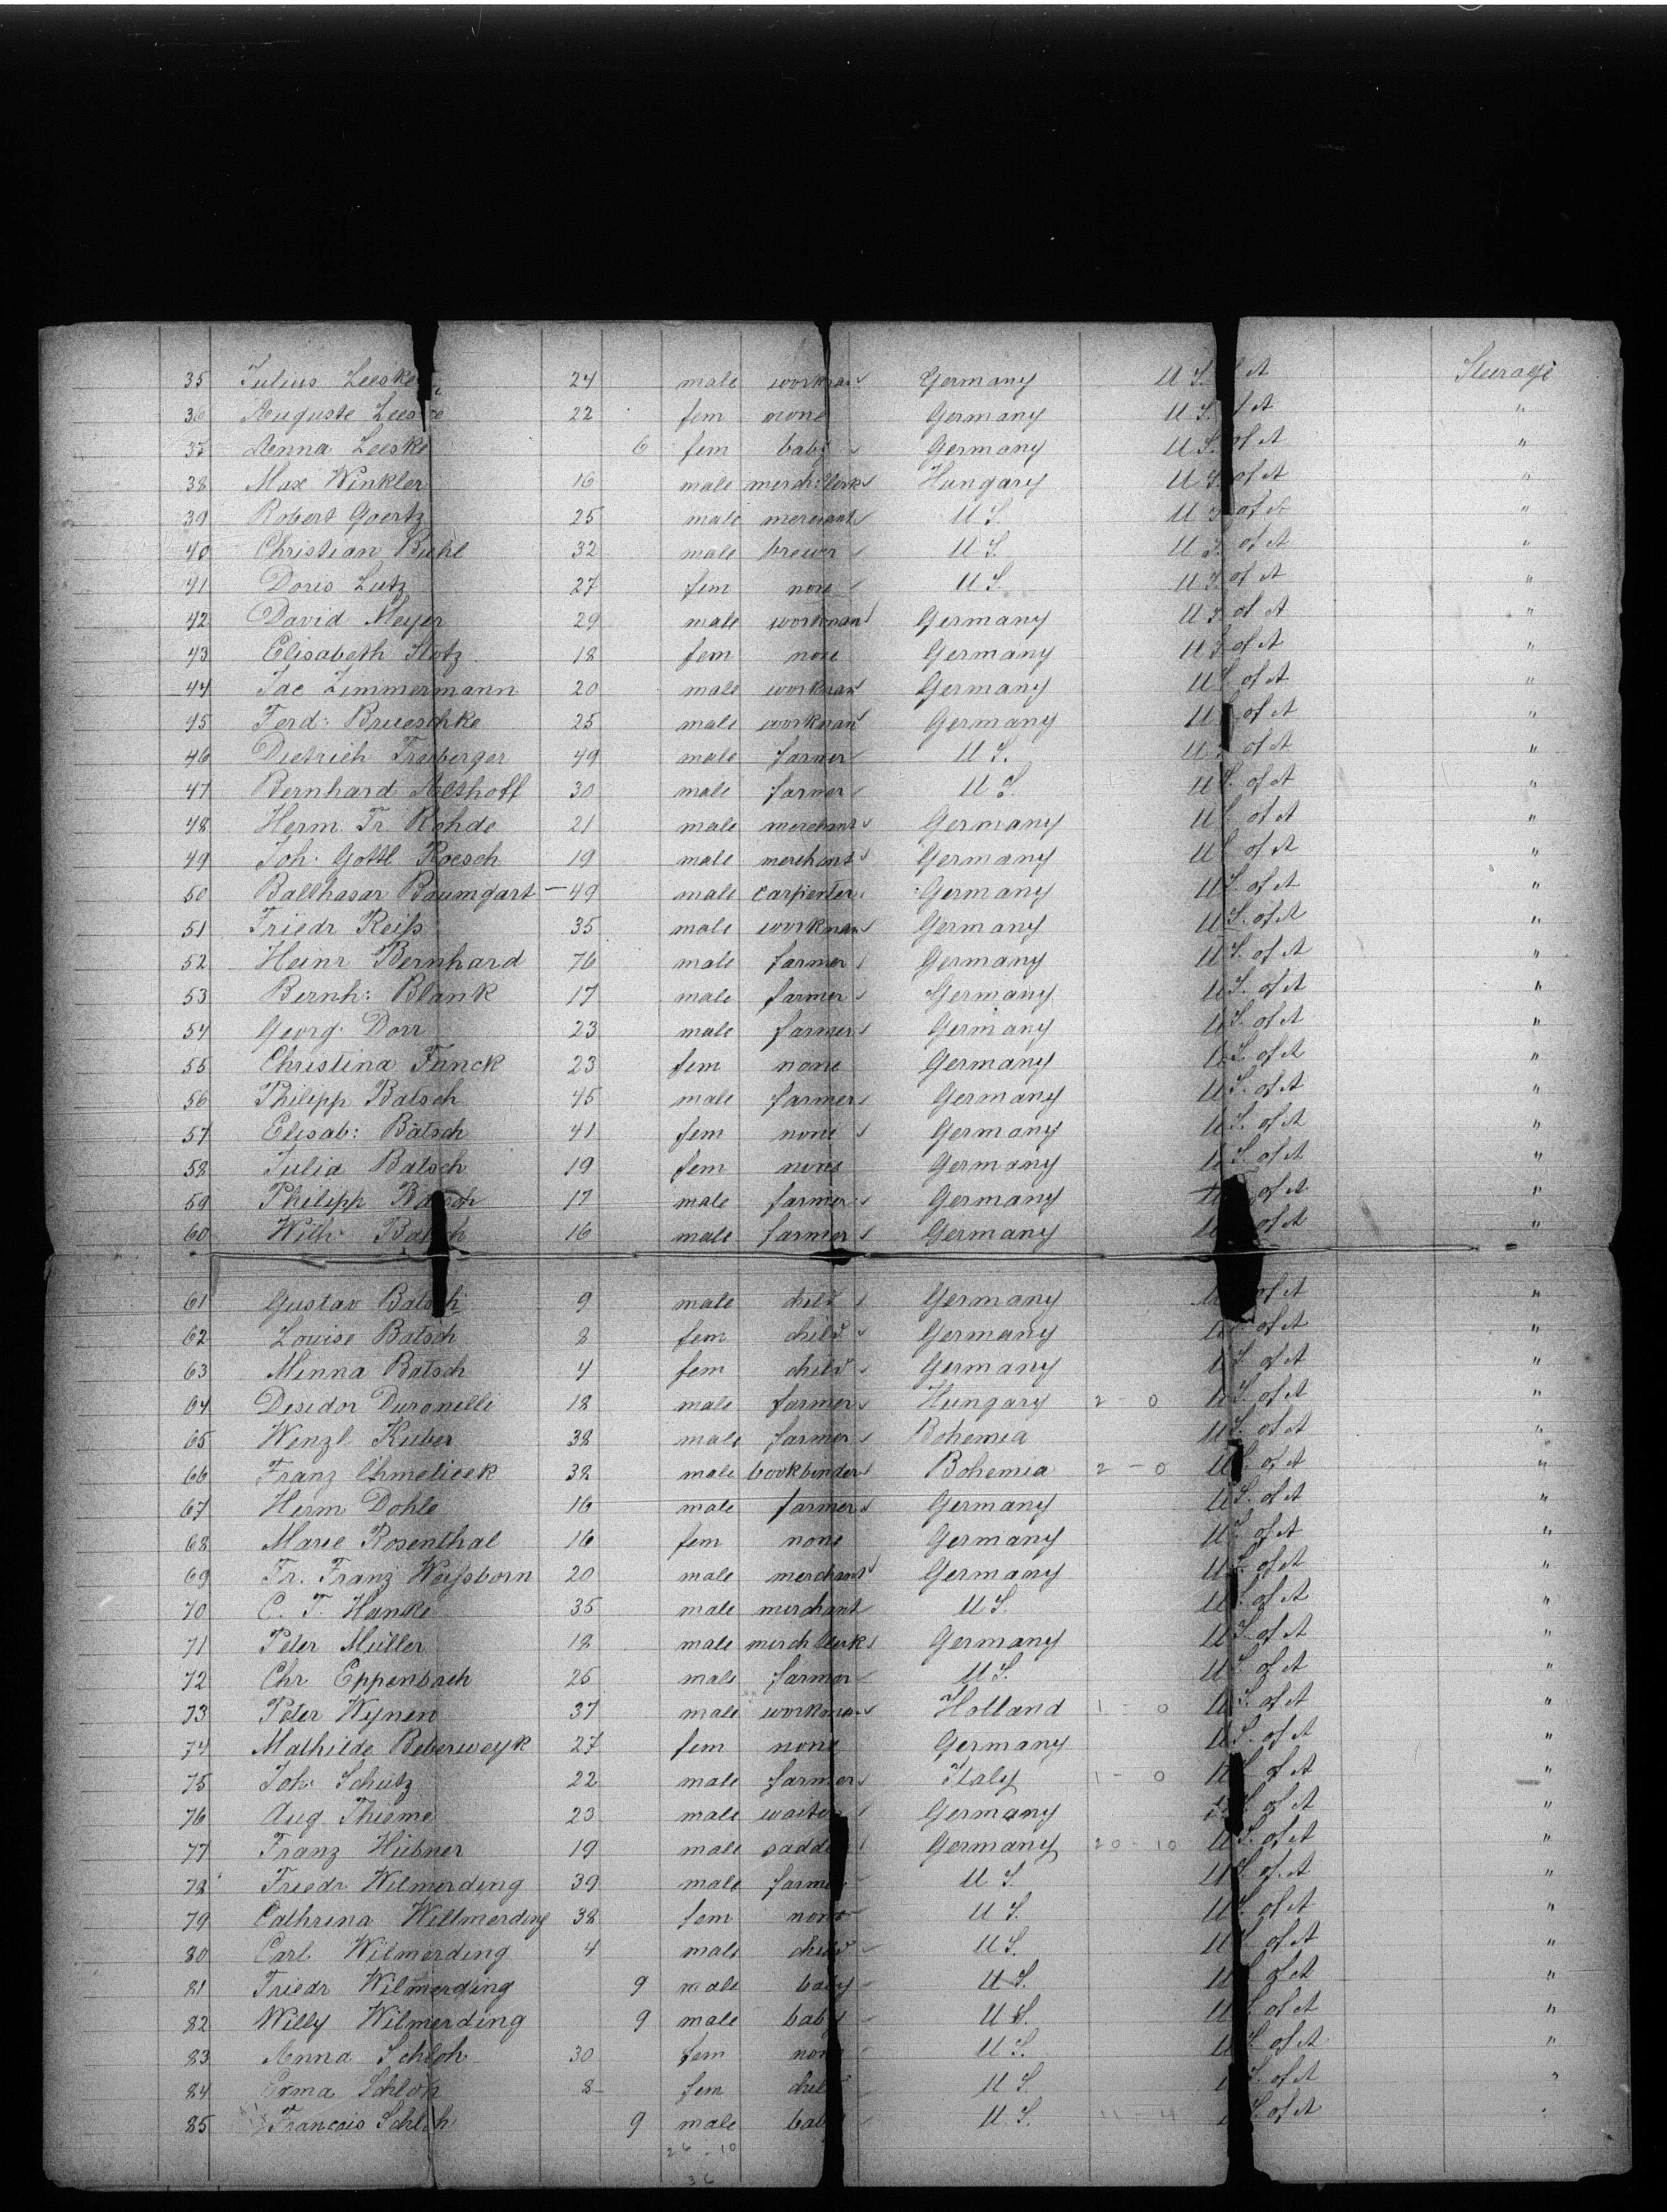 35 Julius Leeske 24 male workman Germany U S. of A Steerage
36 Auguste Leeske 22 fem none Germany U S. of A "
37 Anna Leeske 6 fem baby Germany U S. of A "
38 Max Winkler 16 male merch: Clerk Hungary U S. of A "
39 Robert Goertz 25 male merchant U S. U S. of A "
40 Christian Buhl 32 male brewer U S. U S. of A "
41 Doris Lutz 27 fem none U S. U S. of A "
42 David Meyer 29 male workman Germany U S. of A "
43 Elisabeth Stotz 18 fem none Germany U S. of A "
44 Jac Zimmermann 20 male workman Germany U S. of A "
45 Ferd: Brueschke 25 male workman Germany U S. of A "
46 Dietrich 49 male farmer U S. U S. of A "
47 Bernhard 30 male farmer U S. U S. of A "
48 Herm. Fr. Rohde 21 male merchant Germany U S. of A "
49 Joh. Gottl Roesch 19 male merchant Germany U S. of A "
50 Balthasar Baumgart — 49 male carpenter Germany U S. of A "
51 Friedr Reiß 35 male workman Germany U S. of A "
52 Heinr Bernhard 76 male farmer Germany U S. of A "
53 Bernh: Blank 17 male farmer Germany U S. of A "
54 Georg. Dorr 23 male farmer Germany U S. of A "
55 Christina Funck 23 fem none Germany U S. of A "
56 Philipp Batsch 45 male farmer Germany U S. of A "
57 Elisab: Batsch 41 fem none Germany U S. of A "
58 Julia Batsch 19 fem none Germany U S. of A "
59 Philipp Batsch 17 male farmer Germany U S. of A "
60 Wilh. Batsch 16 male farmer Germany U S. of A "
61 Gustav Batsch 9 male child Germany U S. of A "
62 Louise Batsch 8 fem child Germany U S. of A "
63 Minna Batsch 4 fem child Germany U S. of A "
64 Desidor Duronelli 18 male farmer Hungary 2 - 0 U S. of A "
65 Wenzl Kuber 38 male farmer Bohemia U S. of A "
66 Franz Chmelicek 32 male bookbinder Bohemia 2 - 0 U S. of A "
67 Herm Dohle 16 male farmer Germany U S. of A "
68 Marie Rosenthal 16 fem none Germany U S. of A "
69 Fr. Franz Weißborn 20 male merchant Germany U S. of A "
70 C. F. Hanke 35 male merchant U S. U S. of A "
71 Peter Müller 18 male merch Clerk Germany U S. of A "
72 Chr Eppenbach 25 male farmer U S. U S. of A "
73 Peter Wynen 37 male workman Holland 1 - 0 U S. of A "
74 Mathilde Beberweyk 27 fem none Germany U S. of A "
75 Joh. Schütz 22 male farmer Italy 1 - 0 U S. of A "
76 Aug. Thieme 23 male waiter Germany U S. of A "
77 Franz Hübner 19 male saddler Germany 20 - 10 U S. of A "
78 Friedr Wilmerding 39 male farmer U S. U S. of A "
79 Cathrina Willmerding 38 fem none U S. U S. of A "
80 Carl Wilmerding 4 male child U S. U S. of A "
81 Friedr Wilmerding 9 male baby U S. U S. of A "
82 Willy Wilmerding 9 male baby U S. U S. of A "
83 Anna Schloh 30 fem none U S. U S. of A "
84 Erma Schloh 8 fem child U S. U S. of A "
85 Francois Schloh 9 male baby U S. 11 - 4 U S. of A "
26 - 10
36